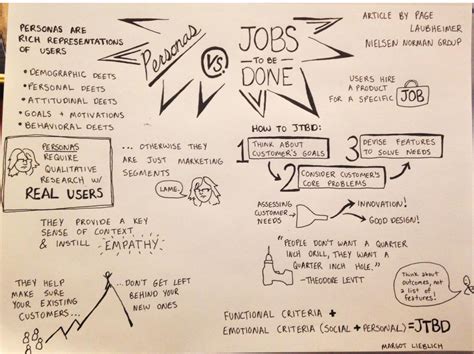 PERSONAS ARE
RICH REPRESENTATIONS
OF USERS
• DEMOGRAPHIC DEETS
• PERSONAL DEETS
• ATTITUDINAL DEETS
• GOALS + MOTIVATIONS
• BEHAVIORAL DEETS
Personas
VS.
JOBS
TO BE
DONE
ARTICLE BY PAGE
LAUBHEIMER
NIELSEN NORMAN GROUP
USERS HIRE
A PRODUCT
FOR A SPECIFIC
JOB
PERSONAS
REQUIRE
QUALITATIVE
RESEARCH W/
REAL USERS
... OTHERWISE THEY
ARE JUST MARKETING
SEGMENTS
LAME.
THEY PROVIDE A KEY
SENSE OF CONTEXT
& INSTILL EMPATHY
THEY HELP
MAKE SURE
YOUR EXISTING
CUSTOMERS...
...DON'T GET LEFT
BEHIND YOUR
NEW ONES
HOW TO JTBD:
1 THINK ABOUT
CUSTOMER'S GOALS
2 CONSIDER CUSTOMER'S
CORE PROBLEMS
3 DEVISE FEATURES
TO SOLVE NEEDS
ASSESSING
CUSTOMER
NEEDS
INNOVATION!
GOOD DESIGN!
"PEOPLE DON'T WANT A QUARTER
INCH DRILL, THEY WANT A
QUARTER INCH HOLE."
-THEODORE LEVITT
Think about
outcomes, not
a list of
features!
FUNCTIONAL CRITERIA +
EMOTIONAL CRITERIA (SOCIAL + PERSONAL) = JTBD
MARGOT LIEBLICH